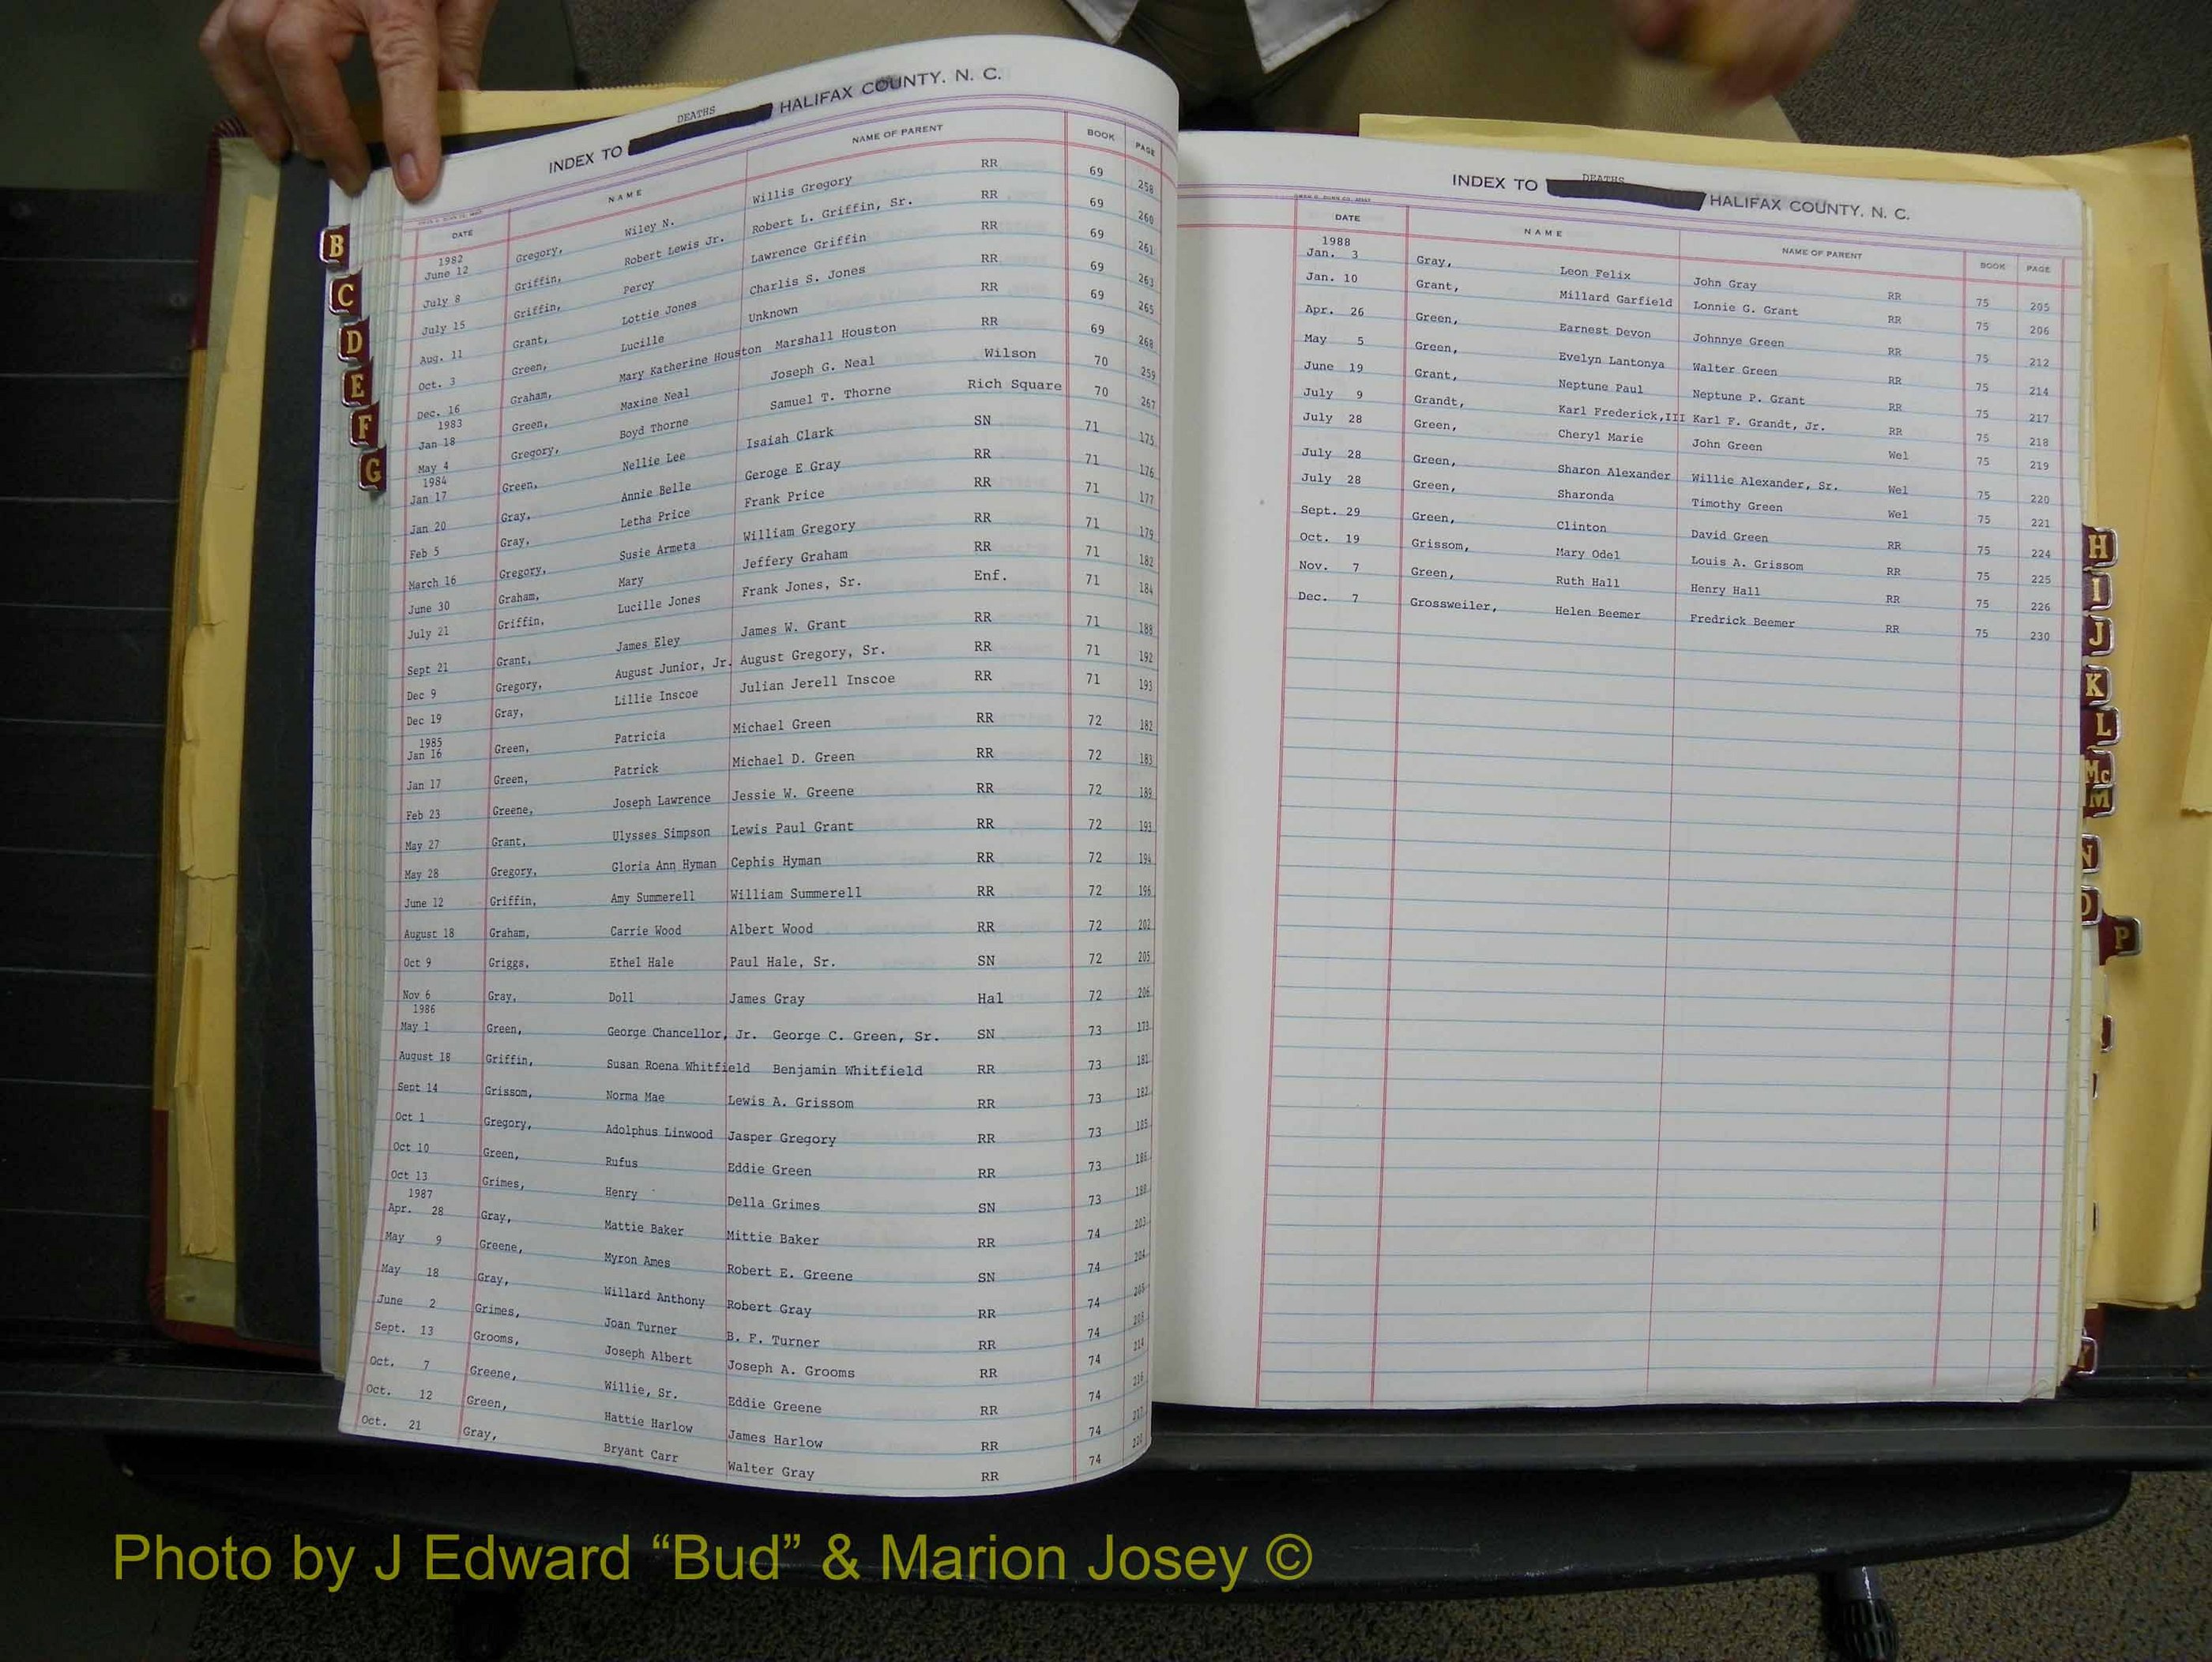 DEATHS
INDEX TO HALIFAX COUNTY. N. C.
DATE NAME NAME OF PARENT BOOK PAGE
1982
June 12 Gregory, Wiley N. Willis Gregory RR 69 258
July 8 Griffin, Robert Lewis Jr. Robert L. Griffin, Sr. RR 69 260
July 15 Griffin, Percy Lawrence Griffin RR 69 261
Aug. 11 Grant, Lottie Jones Charlis S. Jones RR 69 263
Oct. 3 Green, Lucille Unknown RR 69 265
Dec. 16 Graham, Mary Katherine Houston Marshall Houston RR 69 268
1983
Jan 18 Green, Maxine Neal Joseph G. Neal Wilson 70 259
May 4 Gregory, Boyd Thorne Samuel T. Thorne Rich Square 70 267
1984
Jan 17 Green, Nellie Lee Isaiah Clark SN 71 175
Jan 20 Gray, Annie Belle Geroge E Gray RR 71 176
Feb 5 Gray, Letha Price Frank Price RR 71 177
March 16 Gregory, Susie Armeta William Gregory RR 71 179
June 30 Graham, Mary Jeffery Graham RR 71 182
July 21 Griffin, Lucille Jones Frank Jones, Sr. Enf. 71 184
Sept 21 Grant, James Eley James W. Grant RR 71 188
Dec 9 Gregory, August Junior, Jr. August Gregory, Sr. RR 71 192
Dec 19 Gray, Lillie Inscoe Julian Jerell Inscoe RR 71 193
1985
Jan 16 Green, Patricia Michael Green RR 72 182
Jan 17 Green, Patrick Michael D. Green RR 72 183
Feb 23 Greene, Joseph Lawrence Jessie W. Greene RR 72 189
May 27 Grant, Ulysses Simpson Lewis Paul Grant RR 72 193
May 28 Gregory, Gloria Ann Hyman Cephis Hyman RR 72 194
June 12 Griffin, Amy Summerell William Summerell RR 72 196
August 18 Graham, Carrie Wood Albert Wood RR 72 202
Oct 9 Griggs, Ethel Hale Paul Hale, Sr. SN 72 205
Nov 6 Gray, Doll James Gray Hal 72 206
1986
May 1 Green, George Chancellor, Jr. George C. Green, Sr. SN 73 173
August 18 Griffin, Susan Roena Whitfield Benjamin Whitfield RR 73 181
Sept 14 Grissom, Norma Mae Lewis A. Grissom RR 73 182
Oct 1 Gregory, Adolphus Linwood Jasper Gregory RR 73 185
Oct 10 Green, Rufus Eddie Green RR 73 186
Oct 13 Grimes, Henry Della Grimes SN 73
1987
Apr. 28 Gray, Mattie Baker Mittie Baker RR 74 203
May 9 Greene, Myron Ames Robert E. Greene SN 74 204
May 18 Gray, Willard Anthony Robert Gray RR 74
June 2 Grimes, Joan Turner B. F. Turner RR 74
Sept. 13 Grooms, Joseph Albert Joseph A. Grooms RR 74 214
Oct. 7 Greene, Willie, Sr. Eddie Greene RR 74 216
Oct. 12 Green, Hattie Harlow James Harlow RR 74 217
Oct. 21 Gray, Bryant Carr Walter Gray RR 74
B
C
D
E
F
G
DEATHS
INDEX TO HALIFAX COUNTY. N. C.
DATE NAME NAME OF PARENT BOOK PAGE
1988
Jan. 3 Gray, Leon Felix John Gray RR 75 205
Jan. 10 Grant, Millard Garfield Lonnie G. Grant RR 75 206
Apr. 26 Green, Earnest Devon Johnnye Green RR 75 212
May 5 Green, Evelyn Lantonya Walter Green RR 75 214
June 19 Grant, Neptune Paul Neptune P. Grant RR 75 217
July 9 Grandt, Karl Frederick,III Karl F. Grandt, Jr. RR 75 218
July 28 Green, Cheryl Marie John Green Wel 75 219
July 28 Green, Sharon Alexander Willie Alexander, Sr. Wel 75 220
July 28 Green, Sharonda Timothy Green Wel 75 221
Sept. 29 Green, Clinton David Green RR 75 224
Oct. 19 Grissom, Mary Odel Louis A. Grissom RR 75 225
Nov. 7 Green, Ruth Hall Henry Hall RR 75 226
Dec. 7 Grossweiler, Helen Beemer Fredrick Beemer RR 75 230
H
I
J
K
L
Mc
M
N
O
P
Photo by J Edward “Bud” & Marion Josey ©